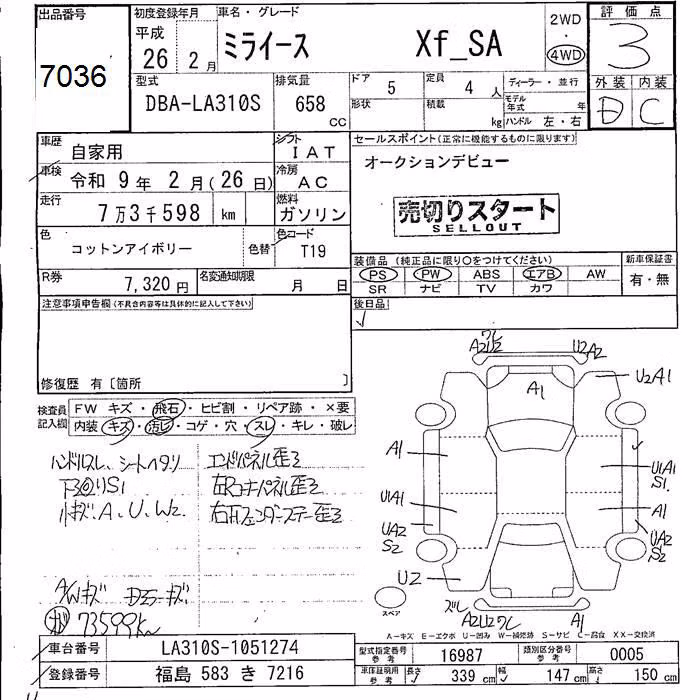 出品番号
7036
初度登録年月
平成
26 2 月
車名・グレード
ミライース Xf_SA
2WD
・
4WD
評価点
3
外装 内装
D C
型式
DBA-LA310S
排気量
658
CC
ドア 5
定員 4 人
形状
積載
kg
ディーラー・並行
モデル年式 年
ハンドル 左・右
車歴
自家用
シフト
I AT
車検
令和 9 年 2 月 ( 26 日)
冷房
AC
走行
7 万 3 千 598 km
燃料
ガソリン
色
コットンアイボリー
色替
色コード
T19
R券
7,320 円
名変通知期限
月 日
セールスポイント(正常に機能するものに限ります)
オークションデビュー
売切りスタート
SELLOUT
装備品 (純正品に限り○をつけてください)
PS PW ABS エアB AW
SR ナビ TV カワ
新車保証書
有・無
後日品
注意事項申告欄(不具合内容等は具体的に記入して下さい)
修復歴 有〔箇所 〕
検査員記入欄
FW キズ・飛石・ヒビ割・リペア跡・×要
内装・キズ・汚レ・コゲ・穴・スレ・キレ・破レ
ハンドルスレ、シートヘタリ
下回りS1
小キズ、A、U、W2
エンドパネル歪ミ
右Rコーナーパネル歪ミ
A/Wキズ
73599km
A1
U2A2
U2A1
A1
U1A1
U1A1
S1
A1
UA2
S2
UA2
S2
U2
ズレ
A2U2ワレ
A1
スペア
A-キズ E-エクボ U-凹み W-補修跡 S-サビ C-腐食 XX-交換済
車台番号
LA310S-1051274
登録番号
福島 583 き 7216
型式指定番号
参考
16987
類別区分番号
参考
0005
車体証明用
参考
長さ 339 cm
幅 147 cm
高さ 150 cm